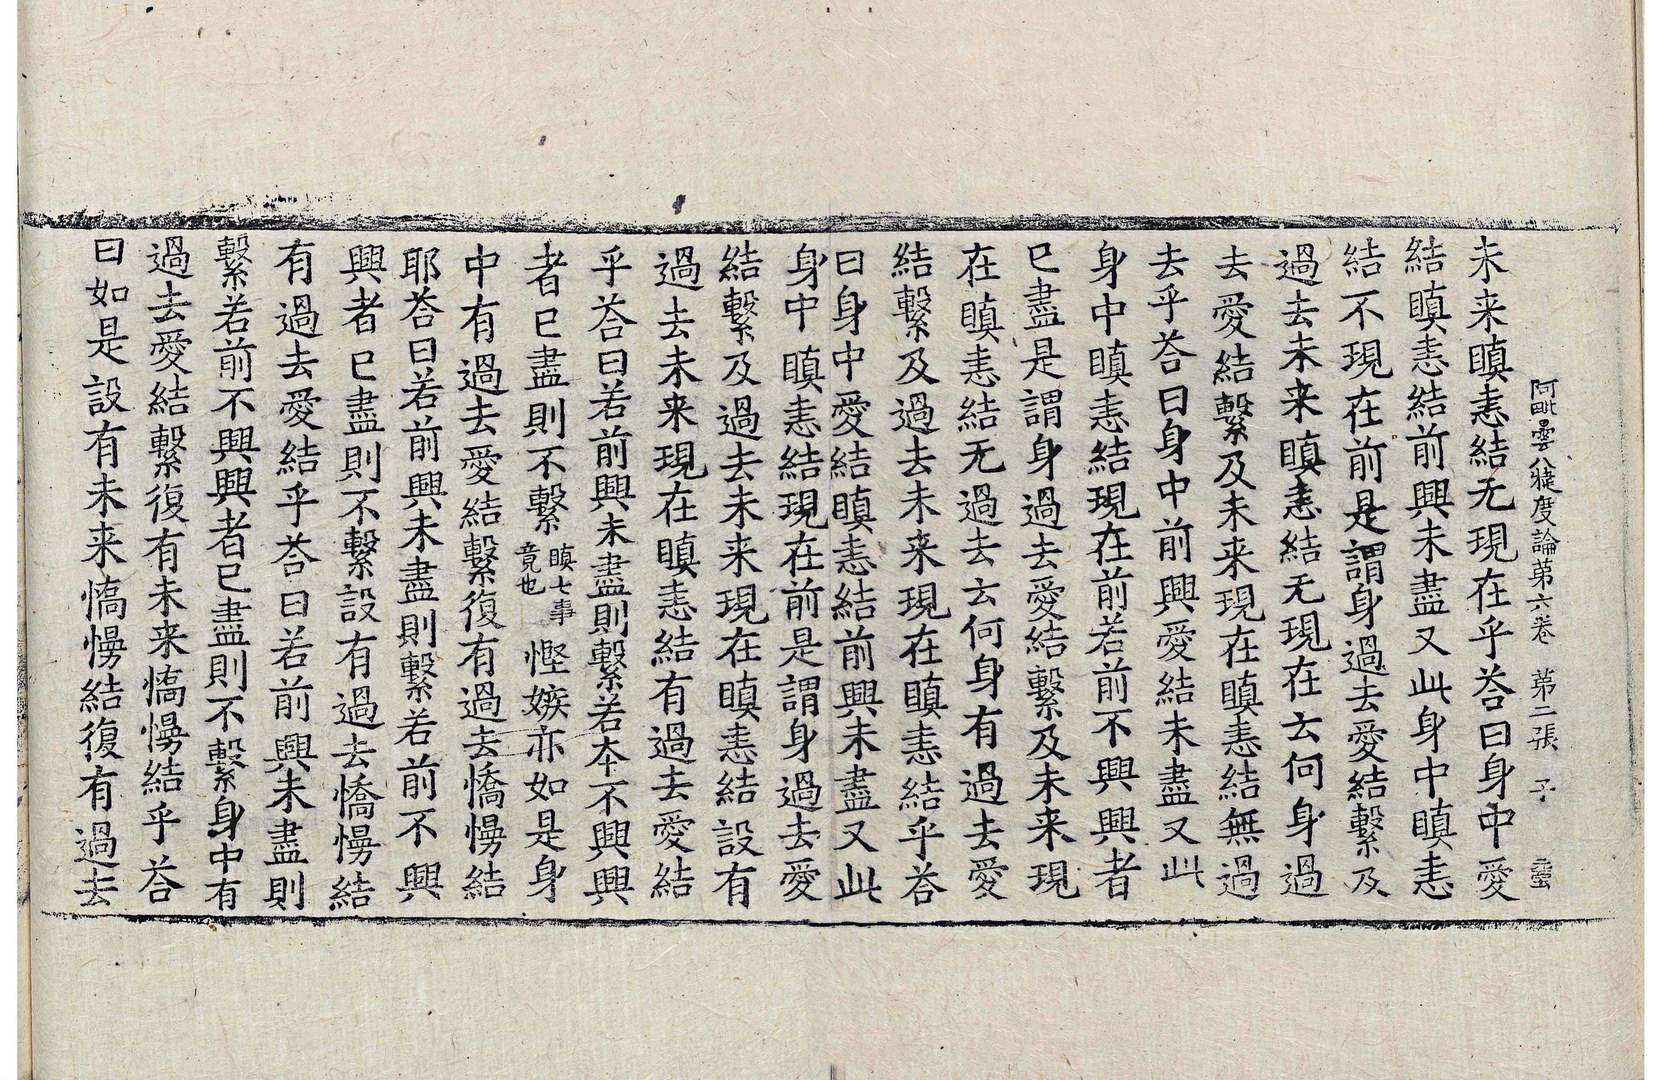 阿毗曇八揵度論第六卷 第二張 子
未来瞋恚結无現在乎荅曰身中愛
結瞋恚結前興未盡又此身中瞋恚
結不現在前是謂身過去愛結繫及
過去未来瞋恚結无現在云何身過
去愛結繫及未来現在瞋恚結無過
去乎荅曰身中前興愛結未盡又此
身中瞋恚結現在前若前不興興者
已盡是謂身過去愛結繫及未来現
在瞋恚結无過去云何身有過去愛
結繫及過去未来現在瞋恚結乎荅
曰身中愛結瞋恚結前興未盡又此
身中瞋恚結現在前是謂身過去愛
結繫及過去未来現在瞋恚結設有
過去未来現在瞋恚結有過去愛結
乎荅曰若前興未盡則繫若本不興興
者已盡則不繫瞋七事竟也慳嫉亦如是身
中有過去愛結繫復有過去憍慢結
耶荅曰若前興未盡則繫若前不興
興者已盡則不繫設有過去憍慢結
有過去愛結乎荅曰若前興未盡則
繫若前不興興者已盡則不繫身中有
過去愛結繫復有未来憍慢結乎荅
曰如是設有未来憍慢結復有過去